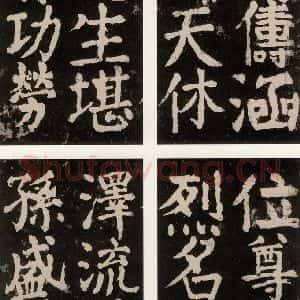 儔涵
天休
生堪
功勞
位尊
烈名
澤流
孫盛
Shufawang.CN